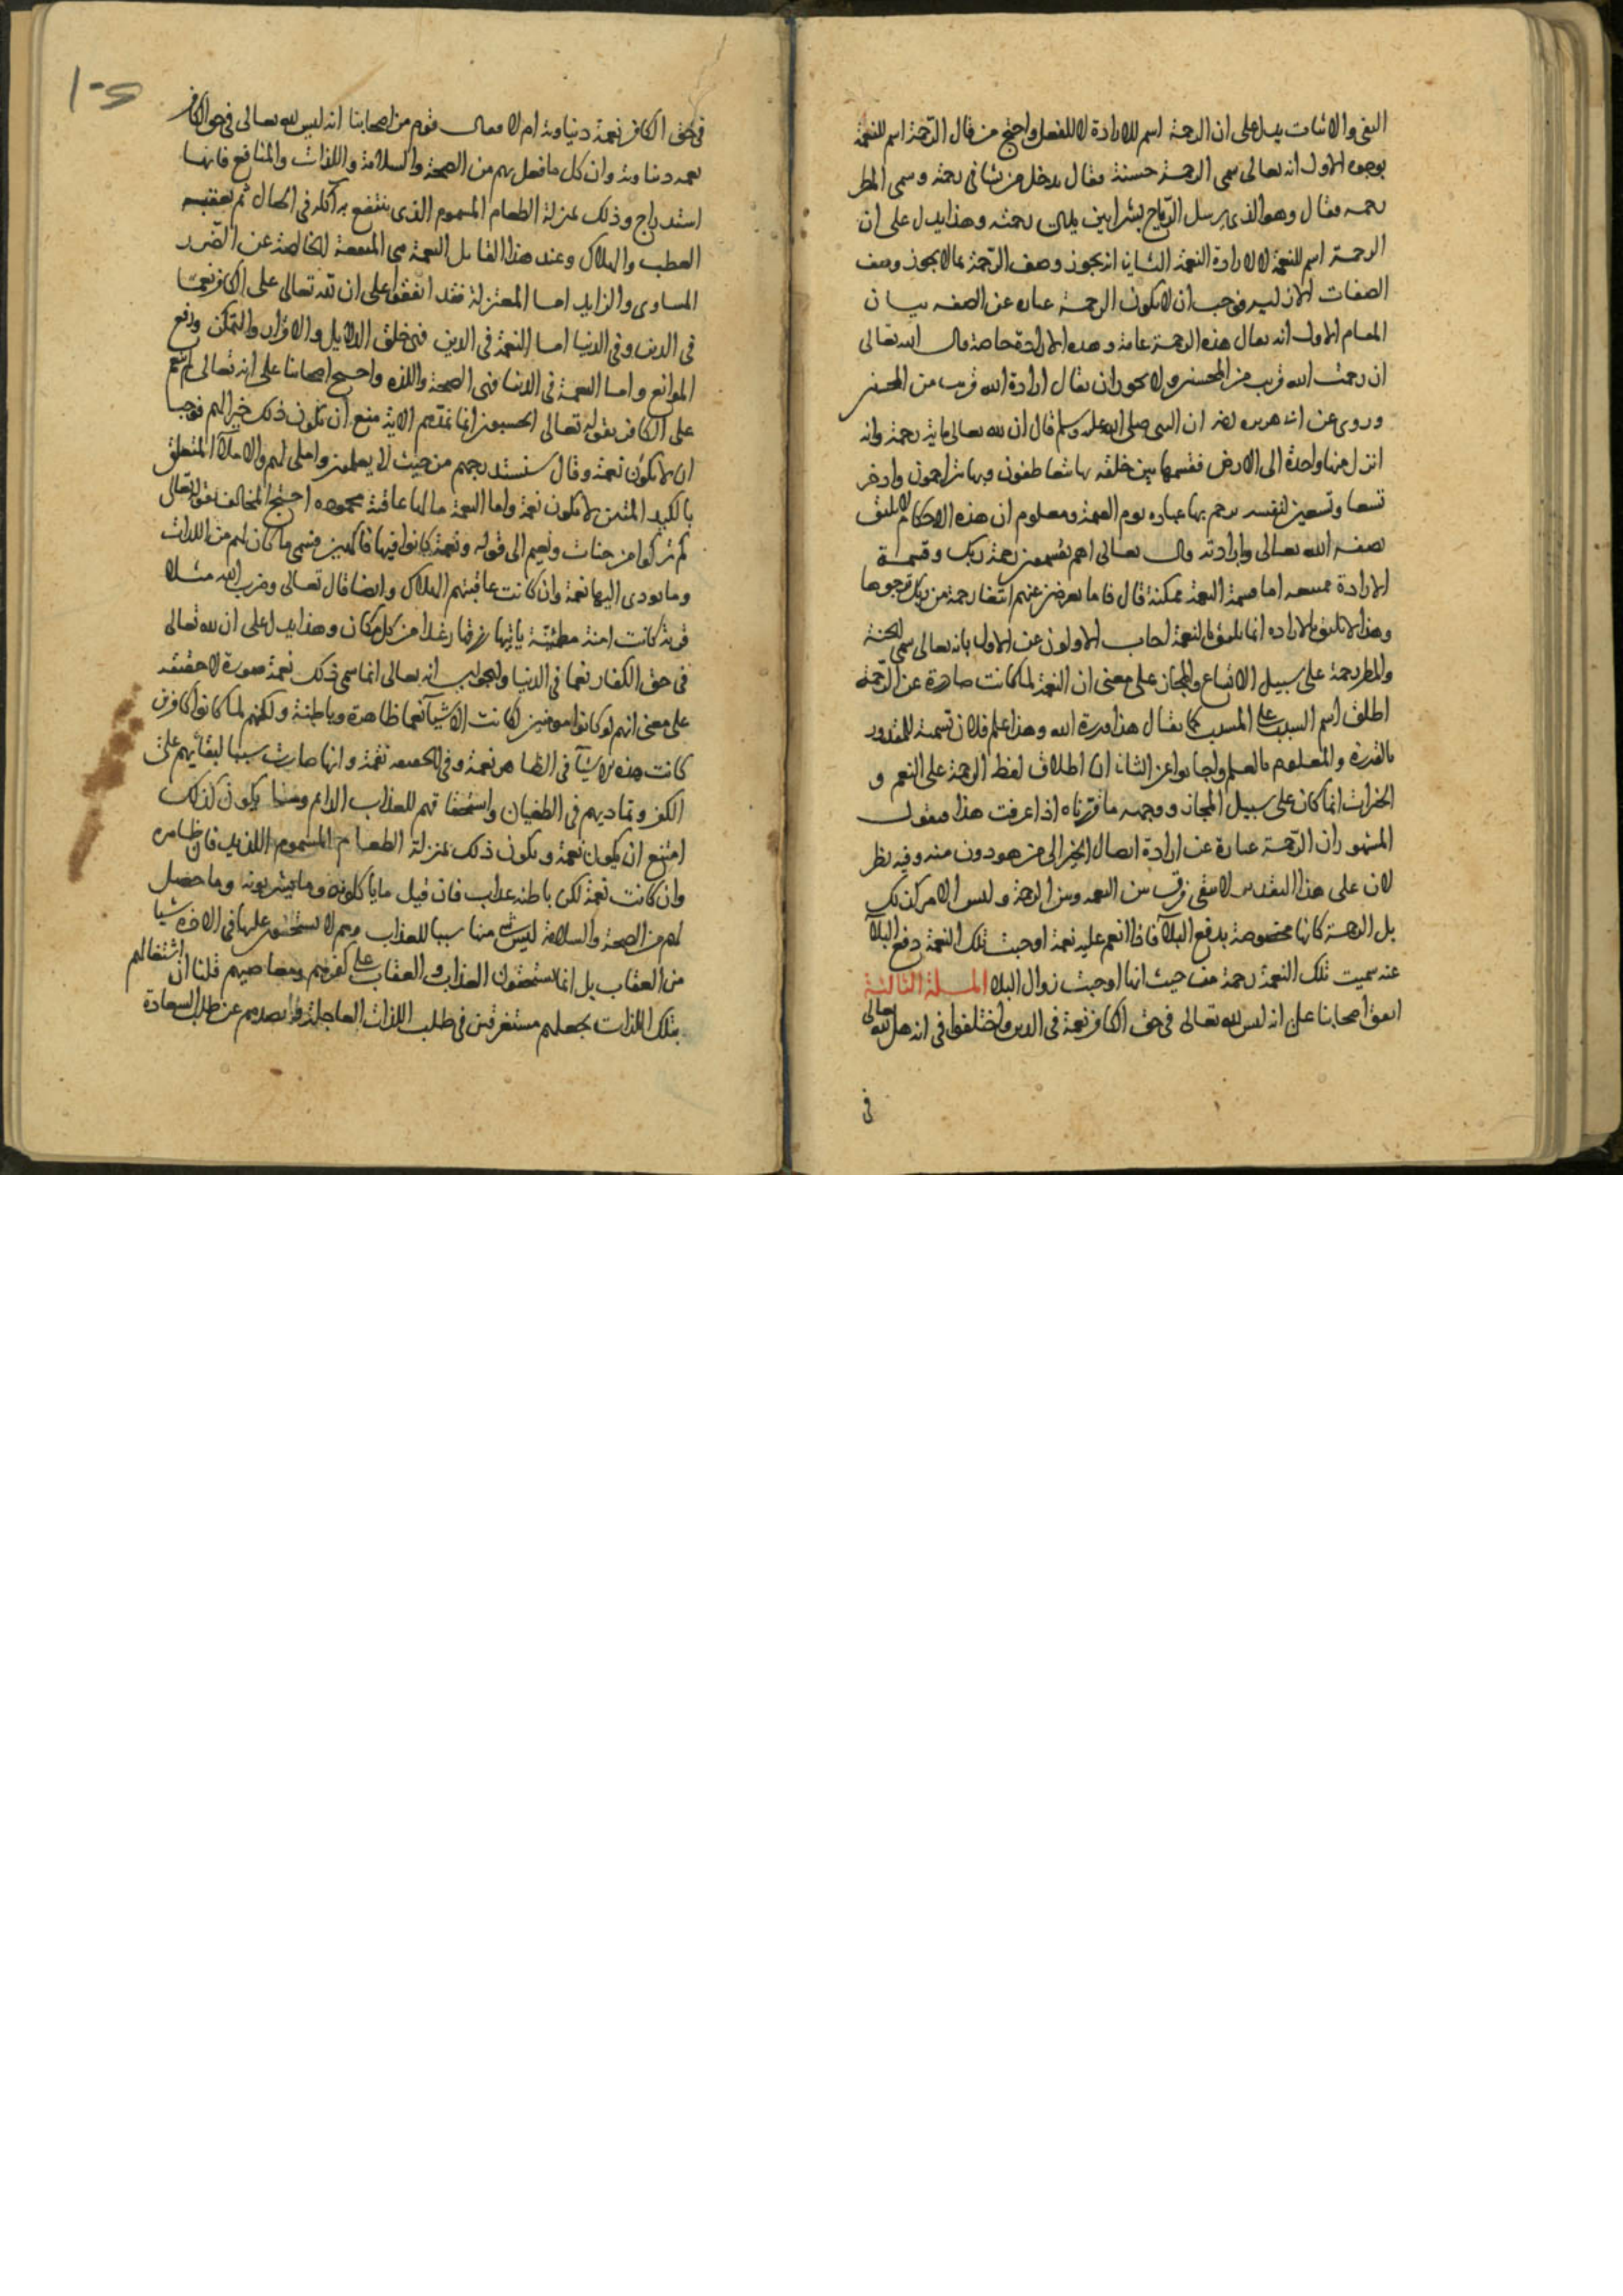 النفى والاثبات يدل على ان الرحمة اسم للارادة لا للفعل واحتج من قال الرحمة اسم للنعمة
بوجوه الاول انه تعالى سمى الرحمة حسنة فقال يدخل من يشا فى رحمته وسمى المطر
رحمه فقال وهو الذى يرسل الرياح بشرا بين يدى رحمته وهذا يدل على ان
الرحمة اسم للنعمة لا لارادة النعمة الثانى انه يجوز وصف الرحمة بما لا يجوز وصف
الصفات الازلية فوجب ان لا يكون الرحمة عباره عن الصفه بيان
المقام الاول انه يقال هذه الرحمة عامة وهذه الارادة خاصة قال الله تعالى
ان رحمت الله قريب من المحسنين ولا يجوز ان يقال ارادة الله قريب من المحسنين
وروى عن ابى هريره ان النبى صلى الله عليه وسلم قال ان لله تعالى ماية رحمة وانه
انزل منها واحدة الى الارض فقسمها بين خلقه بها يتعاطفون وبها يتراحمون وادخر
تسعا وتسعين لنفسه يرحم بها عباده يوم القيمة ومعلوم ان هذه الاحكام لا يليق
بصفه الله تعالى وارادته قال تعالى اهم يقسمون رحمة ربك وقسمة
الارادة ممتنعه اما قسمة النعمة ممكنة قال فاما تعرضن عنهم ابتغا رحمة من ربك ترجوها
وهذا لا يليق بالاراده انما يليق بالنعمة اجاب الاولون عن الاول بانه تعالى سمى الجنة
والمطر رحمة على سبيل الاتساع والمجاز على معنى ان النعمة لما كانت صادرة عن الرحمة
اطلق اسم السبب على المسبب كما يقال هذا قدرة الله وهذا علم فلان تسمية للمقدور
بالقدرة والمعلوم بالعلم واجابوا عن الثانى ان اطلاق لفظ الرحمة على النعم و
الخيرات انما كان على سبيل المجاز ووجهه ما قررناه اذا عرفت هذا فنقول
المشهور ان الرحمة عبارة عن ارادة ايصال الخير الى من هو دون منه وفيه نظر
لان على هذا التقدير لا يبقى فرق بين النعمه وبين الرحمة وليس الامر كذلك
بل الرحمة كانها مخصوصة بدفع البلآ فاذا انعم عليه نعمة اوجبت تلك النعمة دفع البلآ
عنه سميت تلك النعمة رحمة من حيث انها اوجبت زوال البلا المسلة الثالثة
اتفق اصحابنا على انه ليس لله تعالى فى حق الكافر نعمة فى الدين واختلفوا فى انه هل لله تعالى
فى
فى حق الكافر نعمة دنياوية ام لا فقال قوم من اصحابنا انه ليس لله تعالى فى حق الكافر
نعمه دنياوية وان كل ما فعل بهم من الصحة والسلامة واللذات والمنافع فانها
استدراج وذلك بمنزلة الطعام المسموم الذى ينتفع به آكله فى الحال ثم يعقبه
العطب والهلاك وعند هذا القايل النعمة هى المنفعة الخالصة عن الضرر
المساوى والزايد اما المعتزلة فقد اتفقوا على ان لله تعالى على الكافر نعمتا
فى الدين وفى الدنيا اما النعمة فى الدين فهى خلق الدلايل والاقرار والتمكن ورفع
الموانع واما النعمة فى الدنيا فهى الصحة واللذه واحتج اصحابنا على انه تعالى لم ينعم
على الكافر بقوله تعالى ايحسبون انما نمدهم الاية منع ان تكون ذلك خيرا لهم فوجب
ان لا يكون نعمة وقال سنستدرجهم من حيث لا يعلمون واملى لهم والاملآ المتعلق
بالكيد المتين لا يكون نعمة وانما النعمة ما لها عاقبة محموده احتج المخالف بقوله تعالى
كم تركوا من جنات ونعيم الى قوله ونعمة كانوا فيها فاكهين فسمى ما كان لهم من اللذات
وما يودى اليها نعمة وان كانت عاقبتهم الهلاك وايضا قال تعالى وضرب الله مثلا
قرية كانت امنة مطمئنة ياتيها رزقها رغدا من كل مكان وهذا يدل على ان لله تعالى
فى حق الكفار نعما فى الدنيا والجواب انه تعالى انما سمى ذلك نعمة صورة لا حقيقه
على معنى انهم لو كانوا مومنين لكانت الاشيآ نعما ظاهرة وباطنة ولكنهم لما كانوا كافرين
كانت هذه الاشيآ فى الظاهر نعمة وفى الحقيقه نقمة وانها صارت سببا لبقائهم على
الكفر وتماديهم فى الطغيان واستحقاقهم للعذاب الدايم وما يكون كذلك
امتنع ان يكون نعمة ويكون ذلك بمنزلة الطعام المسموم اللذيذ فان ظاهره
وان كانت نعمة لكن باطنه عذاب فان قيل ما ياكلونه وما يشربونه وما حصل
لهم من الصحة والسلامة ليس شى منها سببا للعذاب وهم لا يستحقون عليها فى الاخرة شيا
من العقاب بل انما يستحقون العذاب والعقاب على كفرهم ومعاصيهم قلنا ان اشتغالهم
بتلك اللذات يجعلهم مستغرقين فى طلب اللذات العاجلة وذا يصدهم عن طلب السعادة